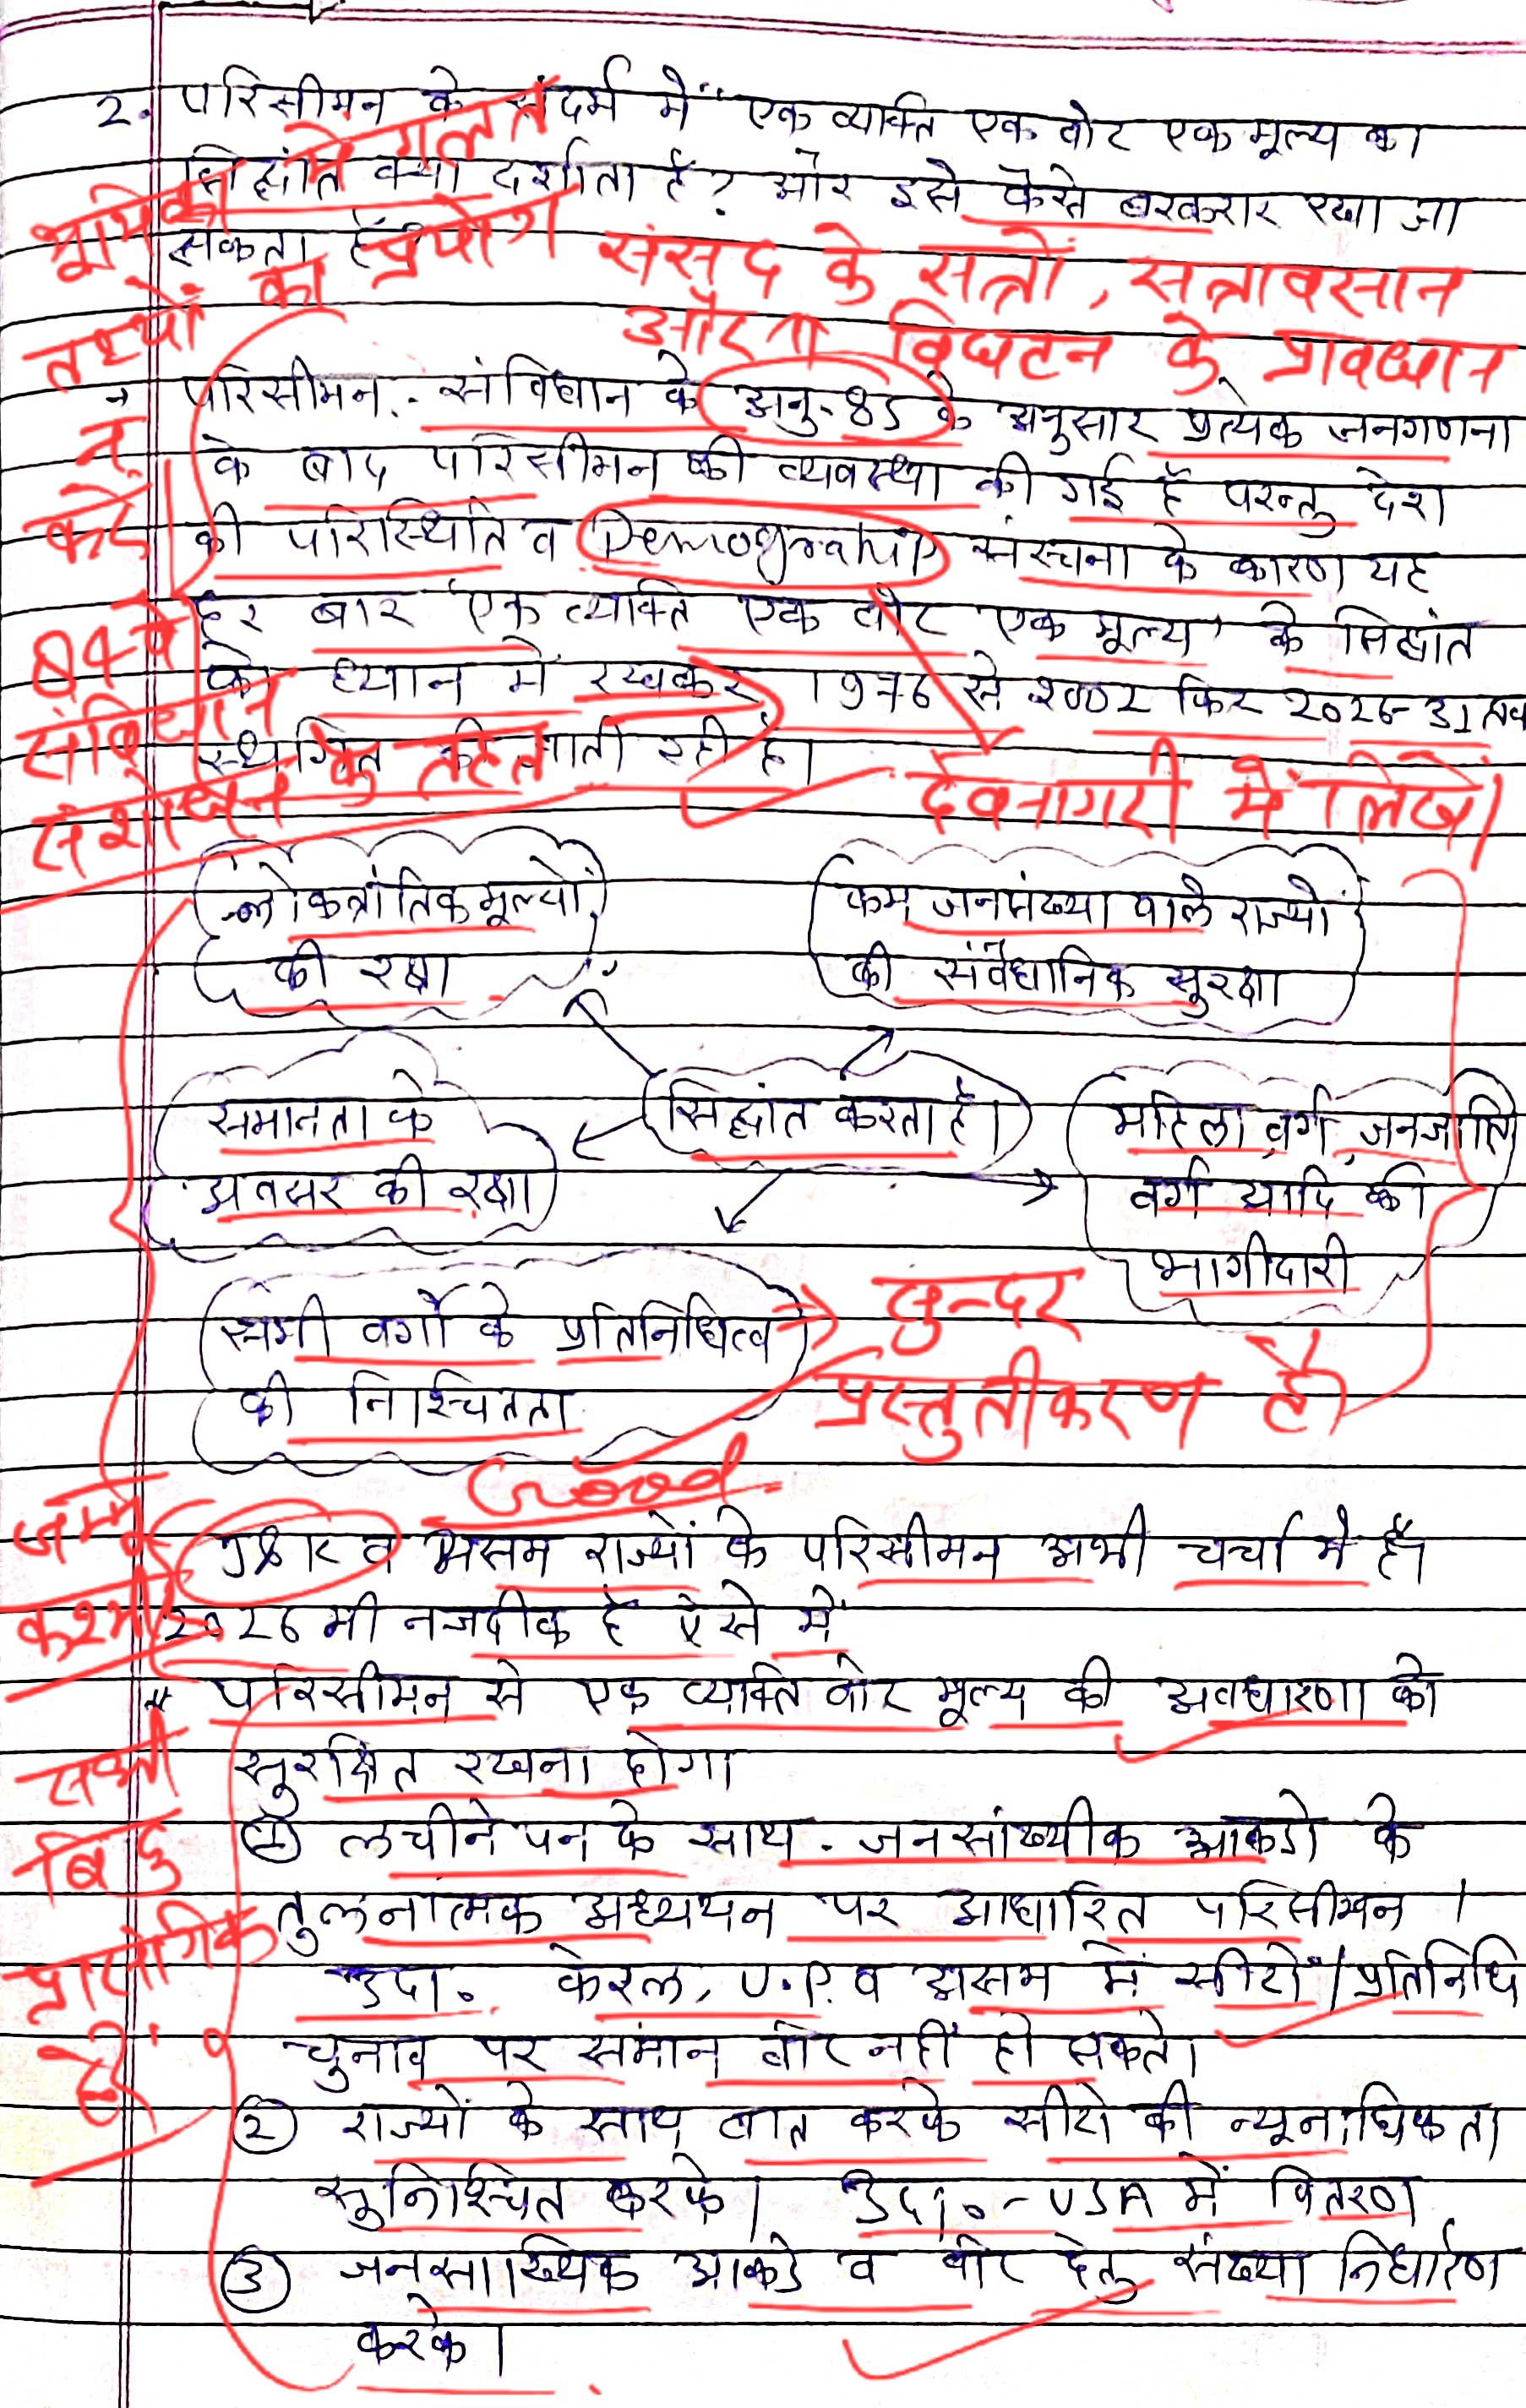 2. परिसीमन के संदर्भ में "एक व्यक्ति एक वोट एक मूल्य का
सिद्धांत क्या दर्शाता है? और इसे कैसे बरकरार रखा जा
सकता है
भूमिका में गलत
तथ्यों का प्रयोग
न
करें।
संसद के सत्रों, सत्रावसान
और विघटन के प्रावधान
→ परिसीमन :- संविधान के अनु-85 के अनुसार प्रत्येक जनगणना
के बाद परिसीमन की व्यवस्था की गई है परन्तु देश
की परिस्थिति व Demographic संरचना के कारण यह
हर बार 'एक व्यक्ति एक वोट एक मूल्य' के सिद्धांत
को ध्यान में रखकर 1976 से 2002 फिर 2026-31 तक
स्थगित की जाती रही है।
84वें
संविधान
संशोधन के तहत
देवनागरी में लिखें।
लोकत्रांतिक मूल्यों
की रक्षा
कम जनसंख्या वाले राज्यों
की संवैधानिक सुरक्षा
समानता के
अवसर की रक्षा
सिद्धांत करता है।
महिला वर्ग, जनजाति
वर्ग आदि की
भागीदारी
सभी वर्गों के प्रतिनिधित्व
की निश्चितता
सुन्दर
प्रस्तुतीकरण है।
Good
जम्मू
कश्मीर
J&K व असम राज्यों के परिसीमन अभी चर्चा में है।
2026 भी नजदीक है ऐसे में
* परिसीमन से एक व्यक्ति वोट मूल्य की अवधारणा को
सुरक्षित रखना होगा
सभी
बिंदु
प्रासंगिक
हैं।
① लचीनेपन के साथ - जनसांख्यीक आकडो के
तुलनात्मक अध्ययन पर आधारित परिसीमन।
उदा. केरल, U.P. व असम में सीटो/प्रतिनिधि
चुनाव पर समान वोट नहीं हो सकते।
② राज्यों के साथ बात करके सीटो की न्यूनाधिकता
सुनिश्चित करके। उदा.- USA में वितरण
③ जनसांख्यिक आकडे व वोट हेतु संख्या निर्धारण
करके।